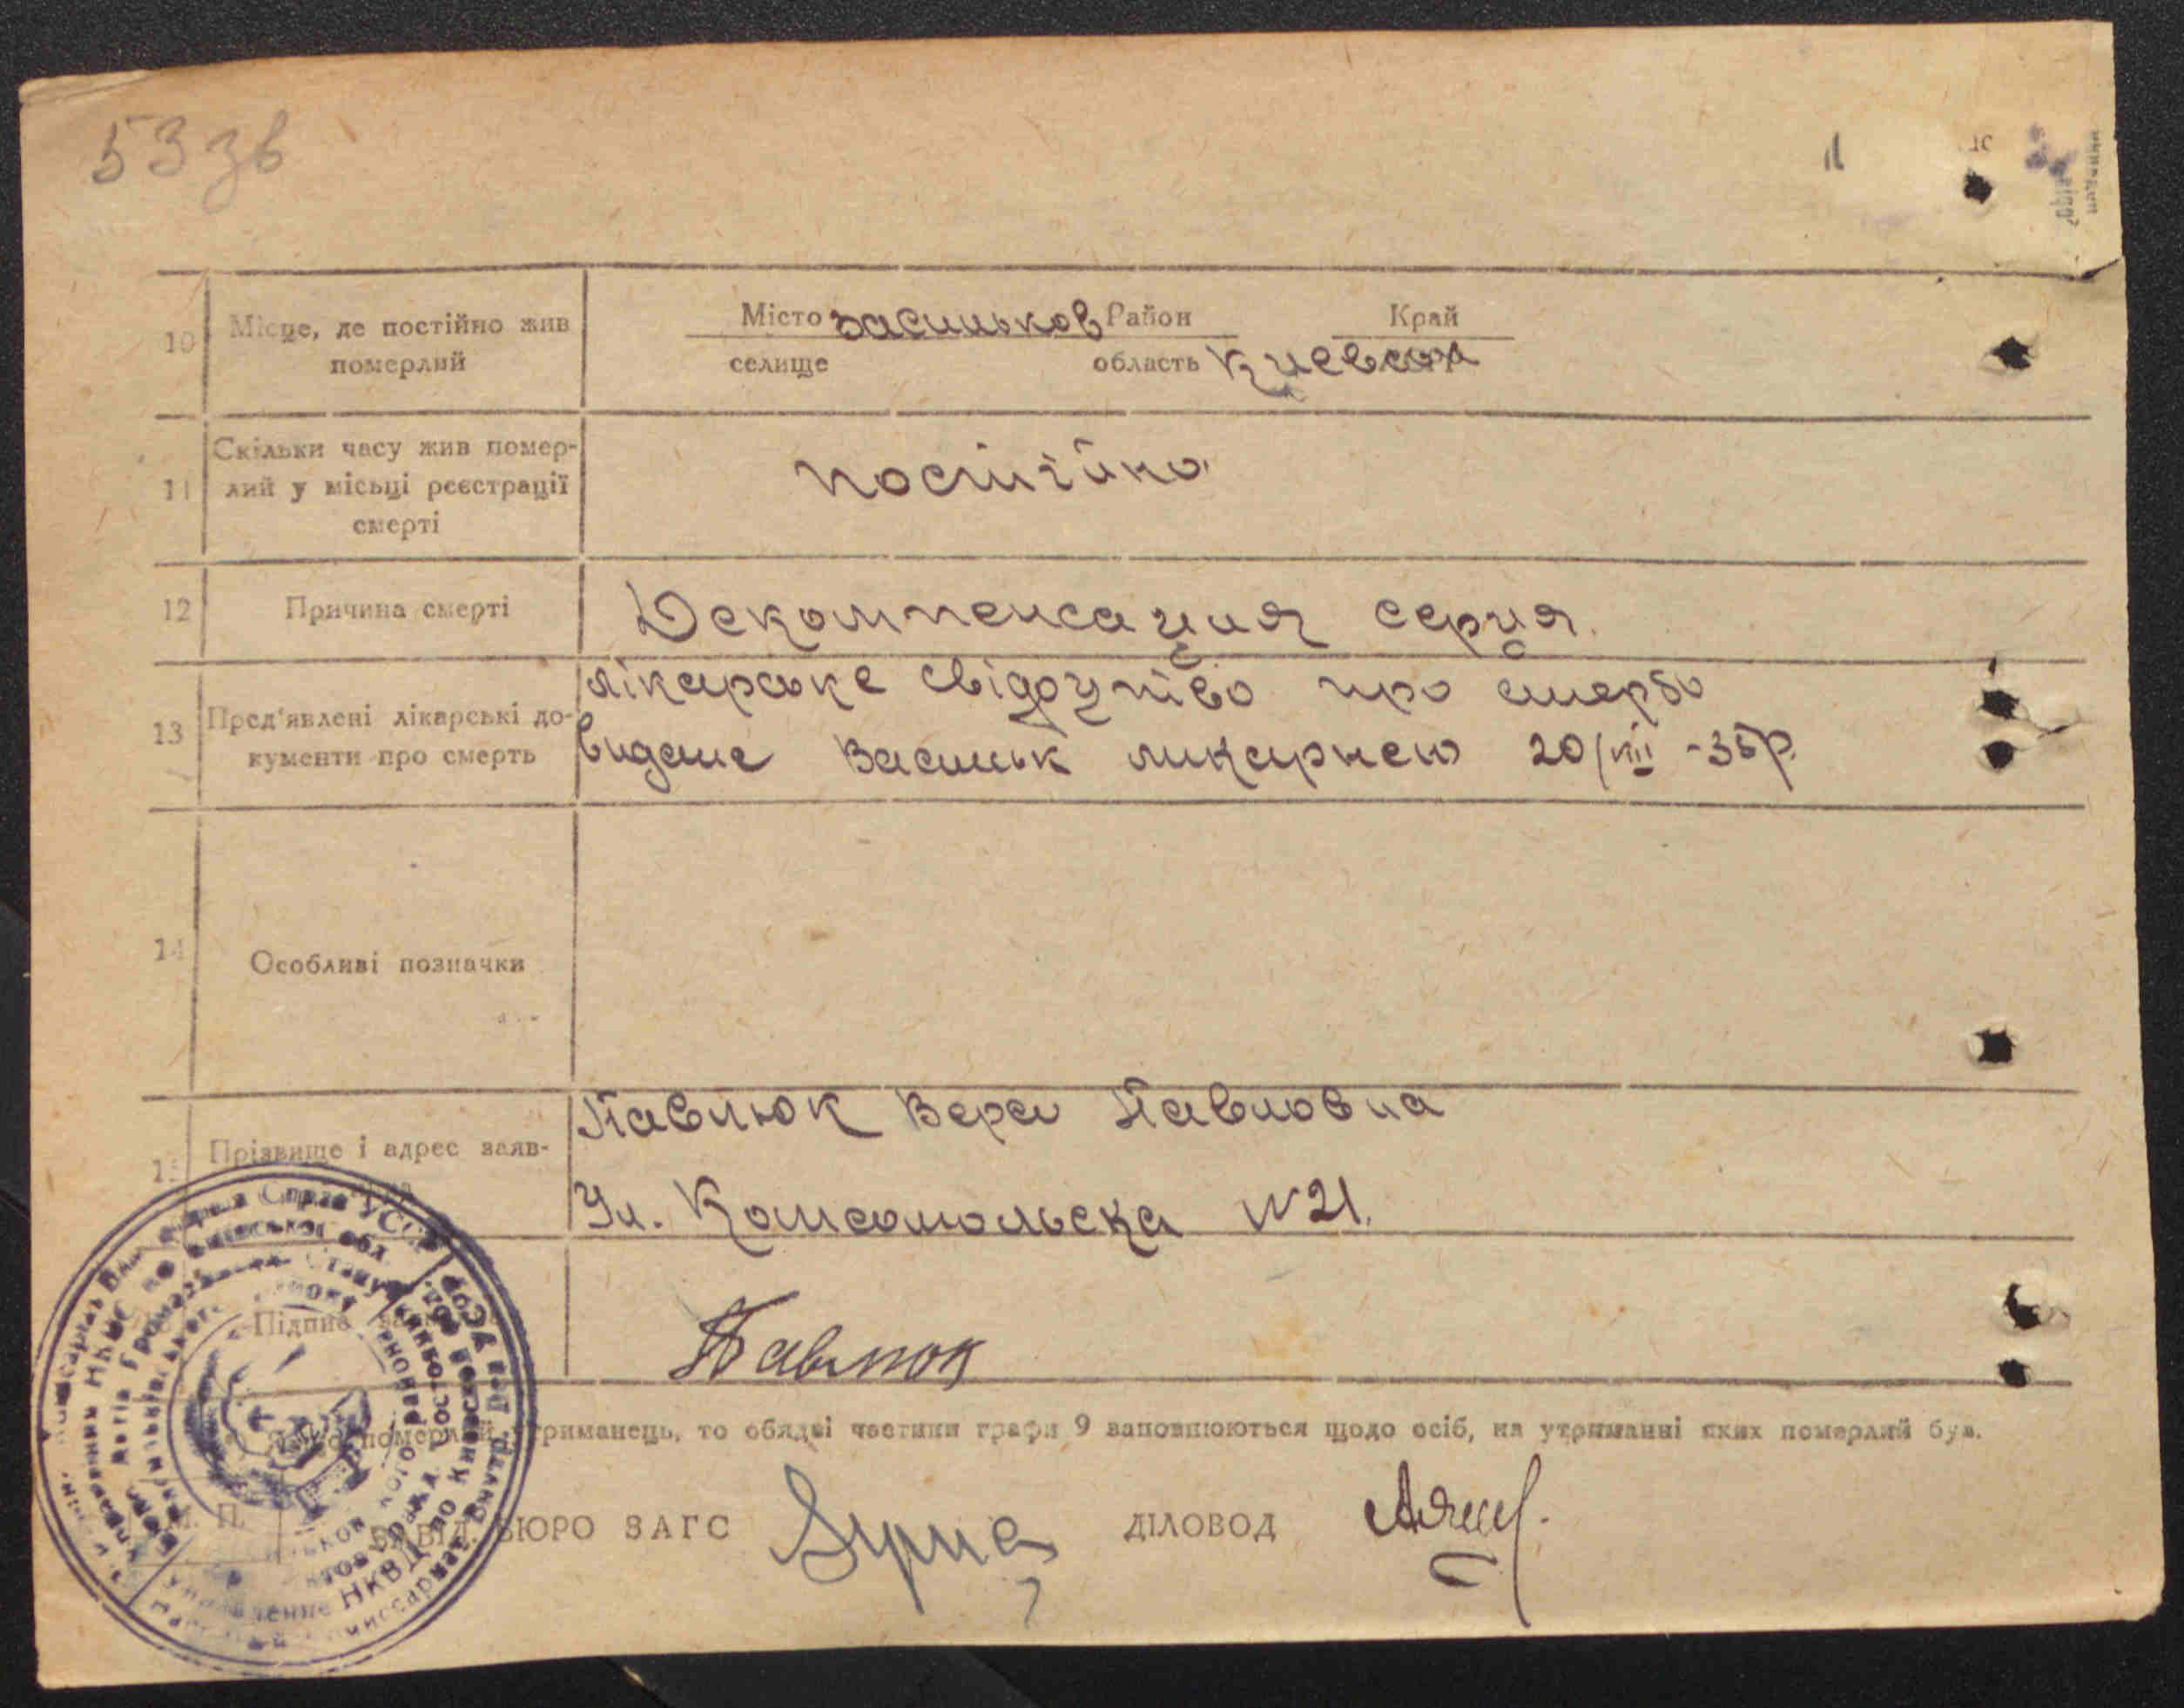 53 зв
11
10 Місце, де постійно жив померлий Місто васильков Район Край
селище область Киевска
11 Скільки часу жив помер-
лий у місьці реєстрації
смерті постійно
12 Причина смерті Декомпенсация серця.
13 Пред'явлені лікарські до-
кументи про смерть лікарське свідоцтво про смерть
видане Васильк ликарнею 20/VIII-35р.
14 Особливі позначки
15 Прізвище і адрес заяв- Павлюк Вера Павловна
Ул. Комсомольска N 21.
Підпис Павлюк
померлий утриманець, то обидві частини графи 9 заповнюються щодо осіб, на утриманні яких померлий був.
М. П.
БЮРО ЗАГС ДІЛОВОД